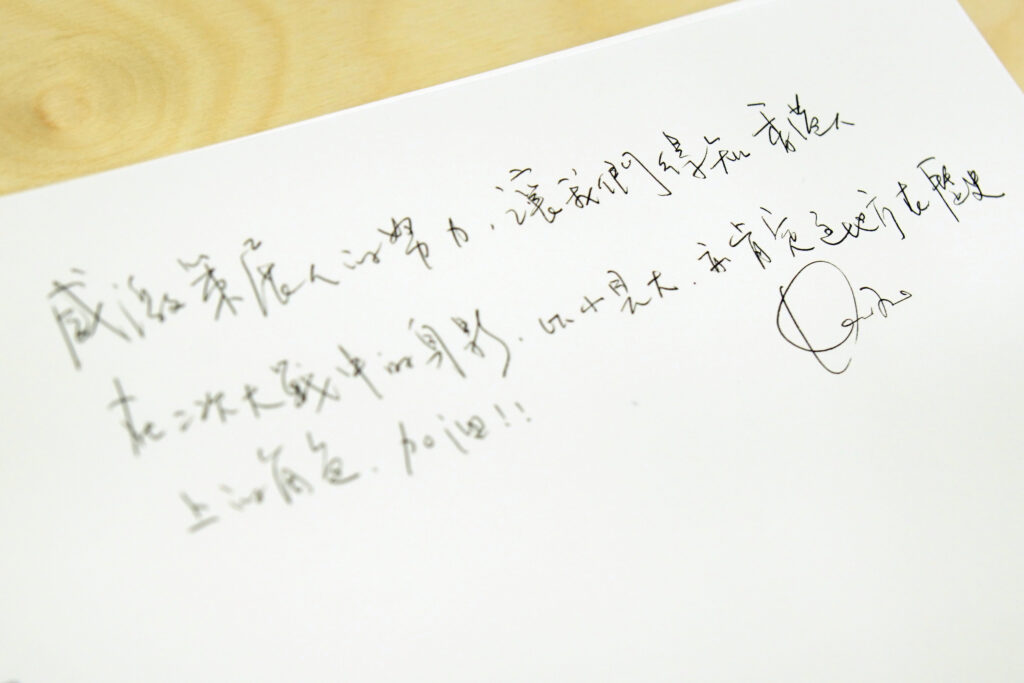 感激策展人的努力,讓我們得知香港人
在二次大戰中的身影,以小見大,亦肯定這地方在歷史
上的角色,加油!!